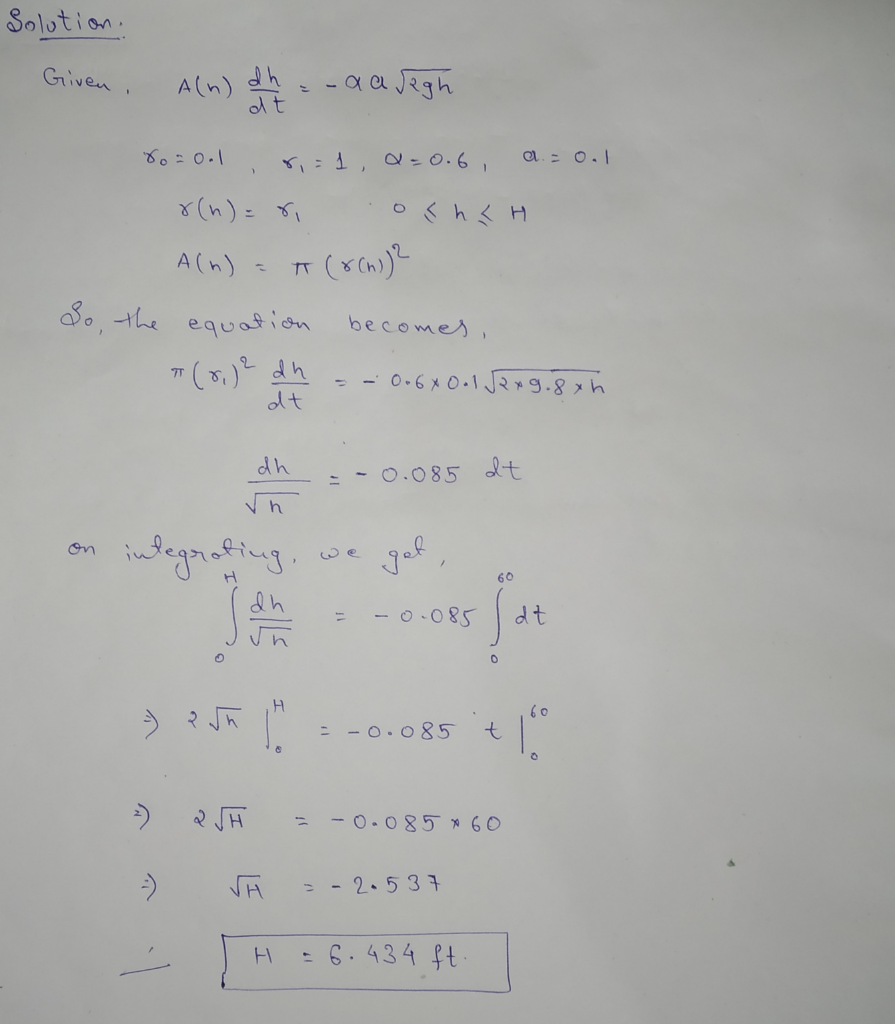 Solution:
Given, A(h) dh/dt = - α a √2gh
r₀ = 0.1 , r₁ = 1 , α = 0.6 , a = 0.1
r(h) = r₁ 0 ≤ h ≤ H
A(h) = π (r(h))²
So, the equation becomes,
π (r₁)² dh/dt = - 0.6 × 0.1 √2×9.8×h
dh/√h = - 0.085 dt
on integrating, we get,
∫₀ᴴ dh/√h = - 0.085 ∫₀⁶⁰ dt
⇒ 2√h |₀ᴴ = - 0.085 t |₀⁶⁰
⇒ 2√H = - 0.085 × 60
⇒ √H = - 2.537
∴ H = 6.434 ft.